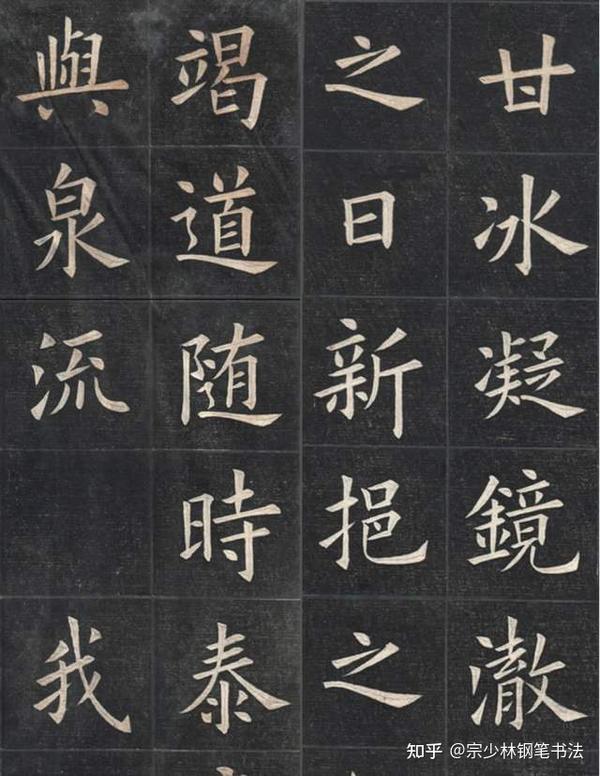 甘冰凝鏡澈
之日新挹之
竭道随時泰
與泉流我
知乎 @宗少林钢笔书法